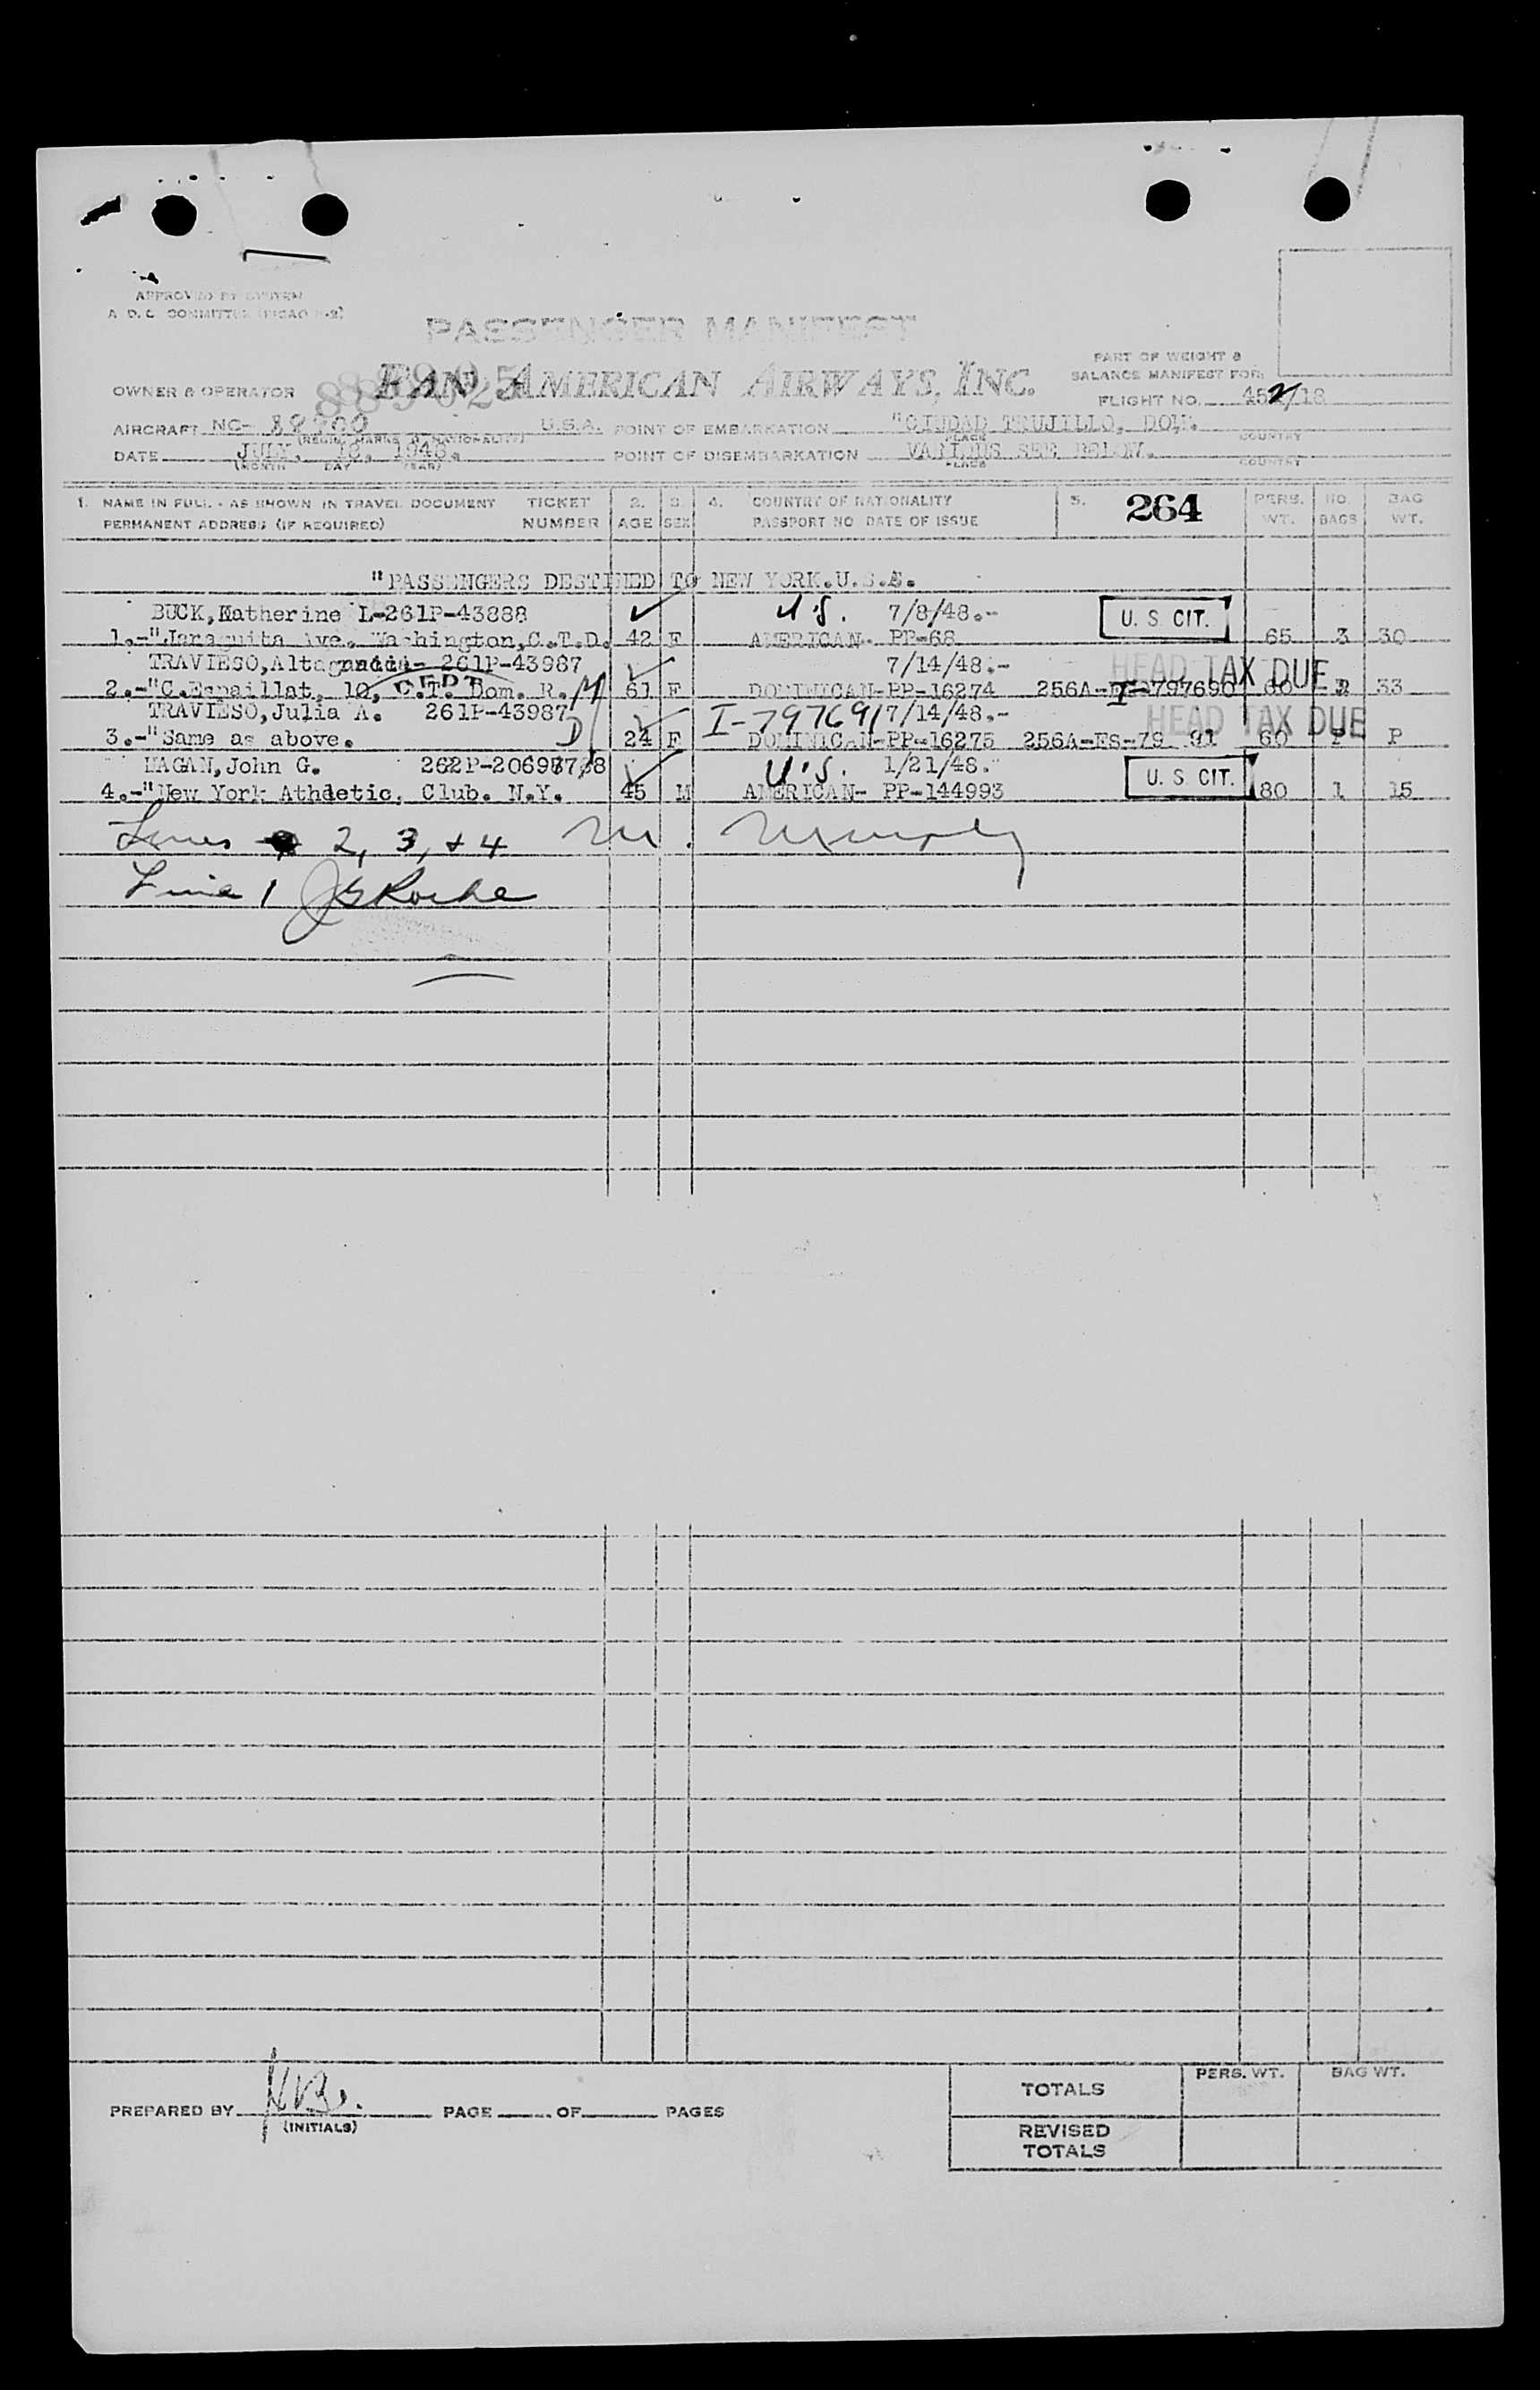 APPROVED BY
A.D.C. COMMITTEE
PASSENGER MANIFEST
OWNER & OPERATOR PAN AMERICAN AIRWAYS, INC.
PART OF WEIGHT &
BALANCE MANIFEST FOR:
FLIGHT NO. 452/18
AIRCRAFT NC- U.S.A. POINT OF EMBARKATION "CIUDAD TRUJILLO, DOM.
(REGIS. MARKS & NATIONALITY) PLACE COUNTRY
DATE JULY, 18, 1948. POINT OF DISEMBARKATION VARIOUS SEE BELOW.
(MONTH DAY YEAR) PLACE COUNTRY
1. NAME IN FULL - AS SHOWN IN TRAVEL DOCUMENT TICKET 2. 3. 4. COUNTRY OF NATIONALITY 5. 264 PERS. NO. BAG
PERMANENT ADDRESS (IF REQUIRED) NUMBER AGE SEX PASSPORT NO DATE OF ISSUE WT. BAGS WT.
"PASSENGERS DESTINED TO NEW YORK.U.S.A.
BUCK,Katherine L-261P-43888 U.S. 7/8/48.- U. S. CIT.
1.-" Ave. Washington,C.T.D. 42 F AMERICAN. PP-68 65 3 30
TRAVIESO,Altagracia- 261P-43987 7/14/48.- HEAD TAX DUE
2.-"C.Espaillat, 10, C.T. Dom. R. 61 F DOMINICAN-PP-16274 256A-I-797690 60 33
TRAVIESO,Julia A. 261P-43987 I-797691 7/14/48.- HEAD TAX DUE
3.-"Same as above. 24 F DOMINICAN-PP-16275 256A-ES-79 91 60 P P
MAGAN,John G. 262P- U.S. 1/21/48. U. S. CIT.
4.-"New York Athletic. Club. N.Y. 45 M AMERICAN- PP-144993 80 1 15
Lines 2, 3, + 4 M. Murphy
Line 1 JG Roche
PREPARED BY PAGE OF PAGES
(INITIALS)
TOTALS PERS. WT. BAG WT.
REVISED
TOTALS